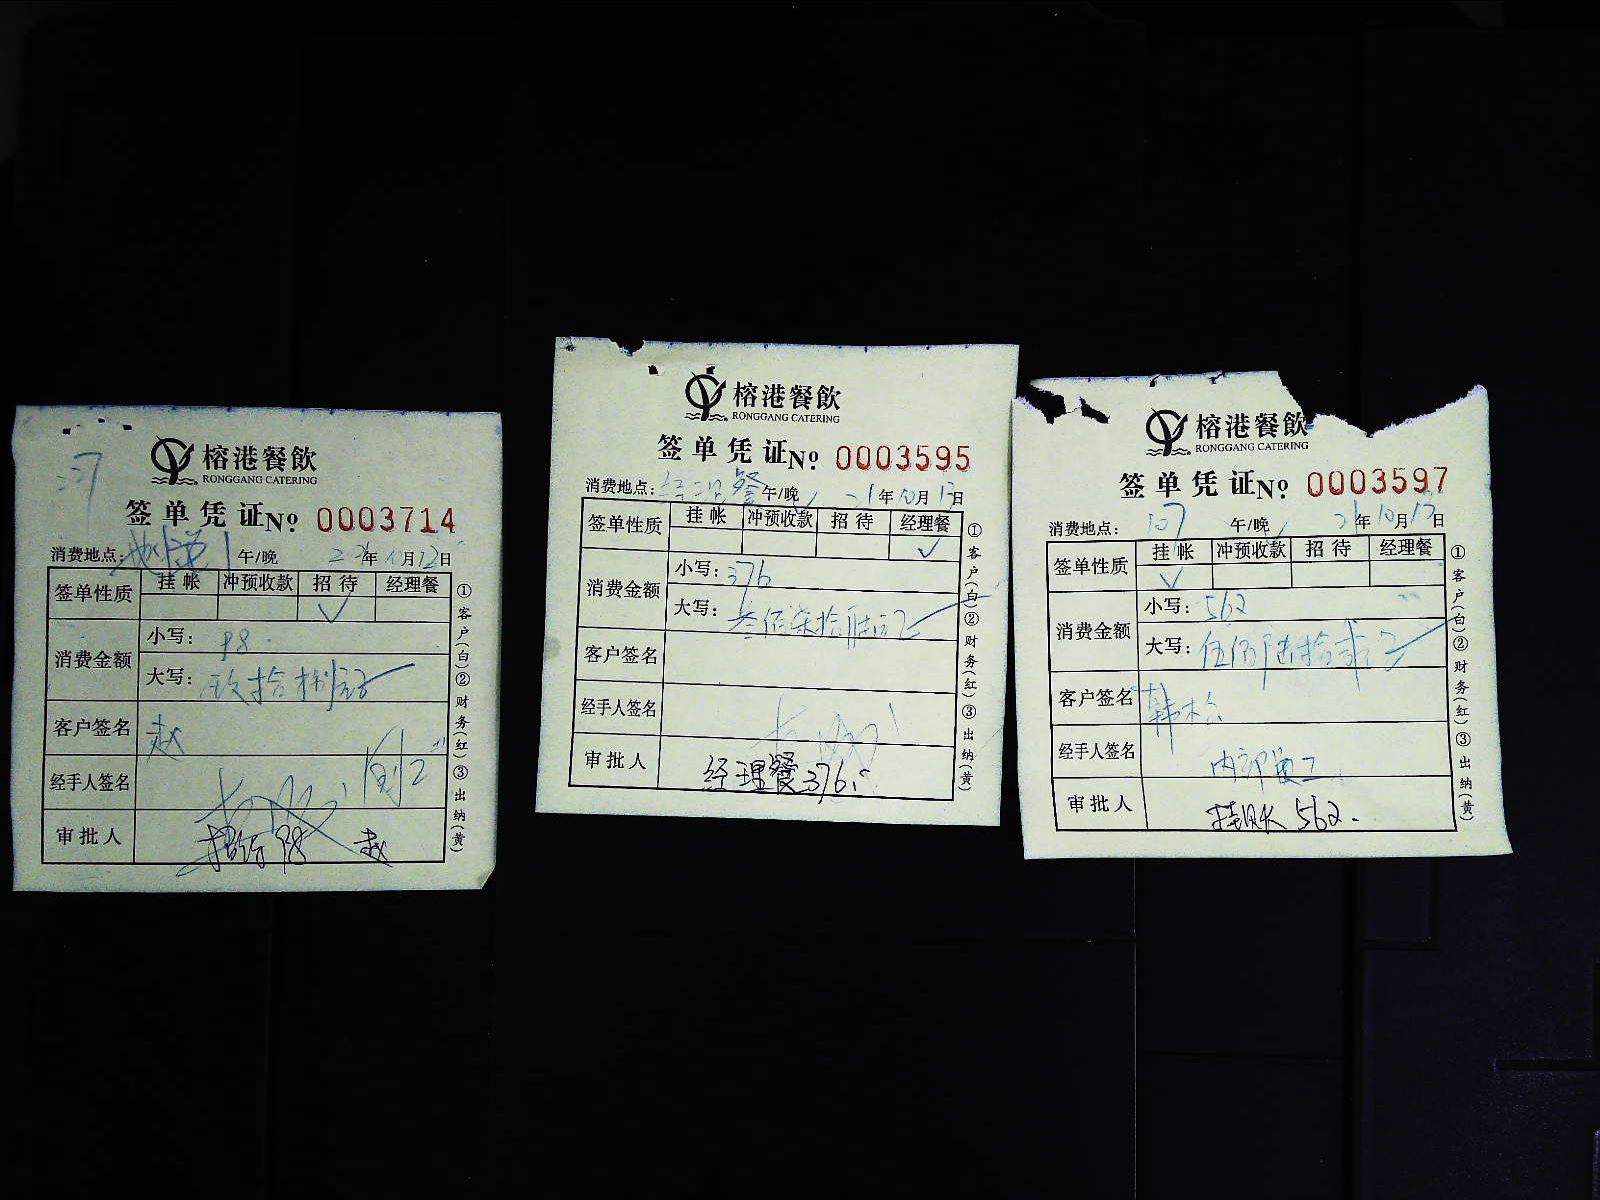 榕港餐飲
RONGGANG CATERING
签单凭证№ 0003714
消费地点: 午/晚 年10月13日
签单性质 挂帐 冲预收款 招待 经理餐
✓
消费金额 小写: 98
大写: 玖拾捌元
客户签名 赵
经手人签名
审批人 招待 98 赵
①客户(白)②财务(红)③出纳(黄)
榕港餐飲
RONGGANG CATERING
签单凭证№ 0003595
消费地点: 经理餐 午/晚 21年10月13日
签单性质 挂帐 冲预收款 招待 经理餐
✓
消费金额 小写: 376
大写: 叁佰柒拾陆元
客户签名
经手人签名
审批人 经理餐376.
①客户(白)②财务(红)③出纳(黄)
榕港餐飲
RONGGANG CATERING
签单凭证№ 0003597
消费地点: 107 午/晚 21年10月13日
签单性质 挂帐 冲预收款 招待 经理餐
✓
消费金额 小写: 562
大写: 伍佰陆拾贰元
客户签名 韩松
经手人签名 内部员工
审批人 挂账 562.
①客户(白)②财务(红)③出纳(黄)